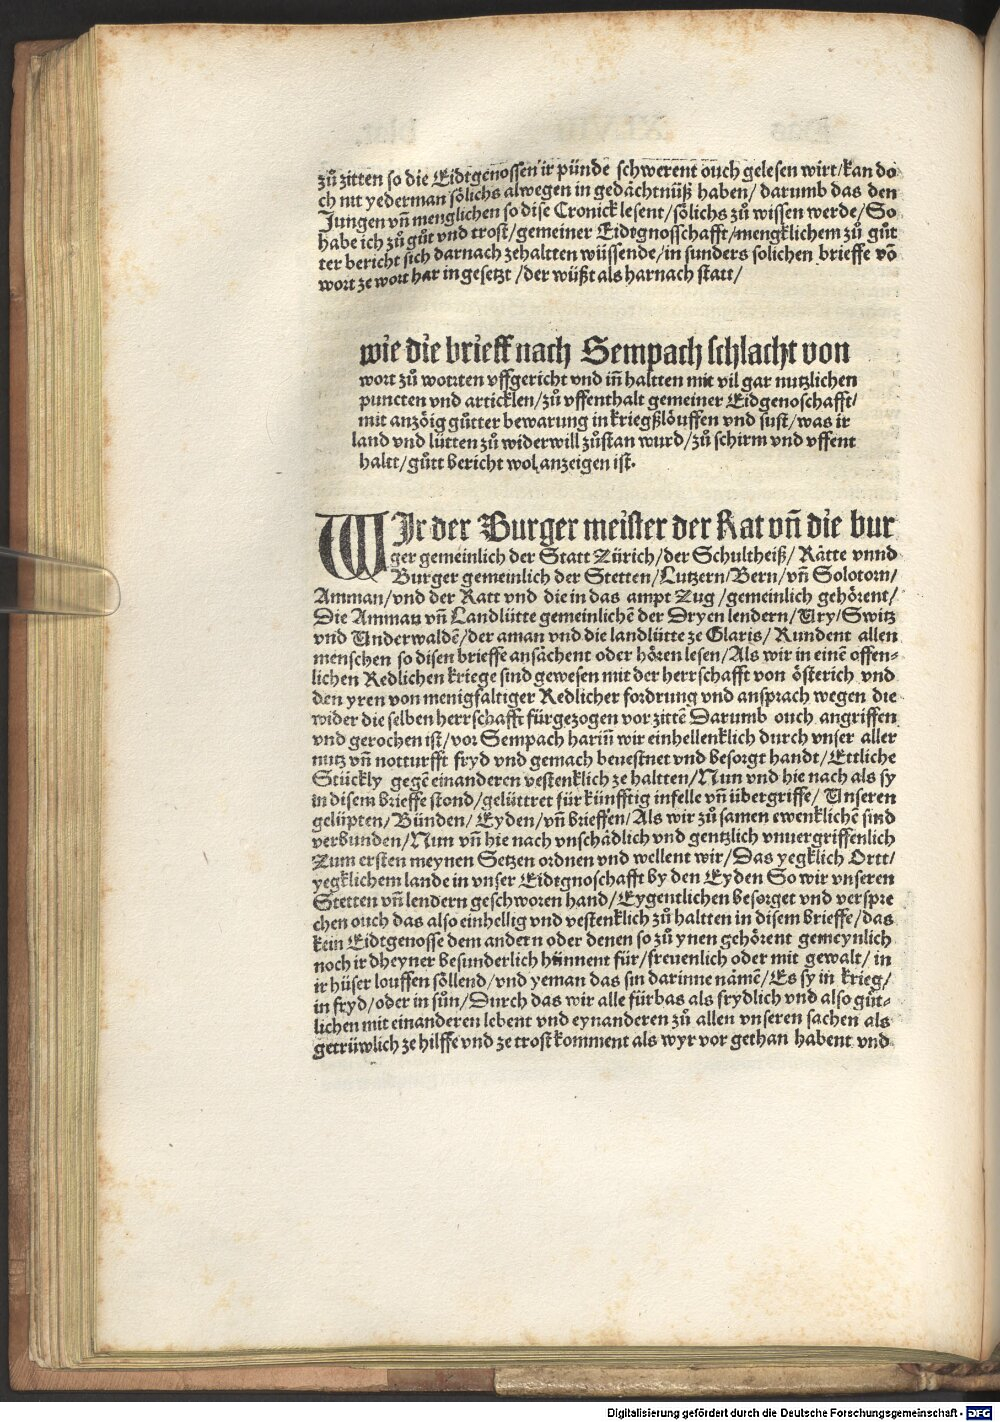 zů zitten so die Eidtgenossen ir pünde schwerent ouch gelesen wirt/kan do
ch nit yederman sölichs alwegen in gedächtnüß haben/ darumb das den
Jungen vn̄ menglichen so dise Cronick lesent/sölichs zů wissen werde/So
habe ich zů gůt vnd trost/gemeiner Eidtgnosschafft/mengklichem zů gůt
ter bericht sich darnach zehaltten wüssende/in sunders solichen brieffe vō
wort ze wort har in gesetzt/der wüßt als harnach statt/
wie die brieff nach Sempach schlacht von
wort zů wortten vffgericht vnd in̄ haltten mit vil gar nutzlichen
puncten vnd articklen/zů vffenthalt gemeiner Eidgenoschafft/
mit anzöig gůtter bewarung in kriegßlöuffen vnd sust/was ir
land vnd lütten zů widerwill zůstan wurd/zů schirm vnd vffent
haltt/gůtt bericht wol anzeigen ist.
WIr der Burger meister der Rat vn̄ die bur
ger gemeinlich der Statt Zürich/der Schultheiß/ Rätte vnnd
Burger gemeinlich der Stetten/Lutzern/Bern/vn̄ Solotorn/
Amman/vnd der Ratt vnd die in das ampt Zug/gemeinlich gehörent/
Die Amman vn̄ Landlütte gemeinlichē der Dryen lendern/Ury/Switz
vnd Underwaldē/der aman vnd die landlütte ze Glaris/Kundent allen
menschen so disen brieffe ansächent oder hören lesen/Als wir in einē offen-
lichen Redlichen kriege sind gewesen mit der herrschafft von österich vnd
den yren von menigfaltiger Redlicher fordrung vnd ansprach wegen die
wider die selben herrschafft fürgezogen vor zittē Darumb ouch angriffen
vnd gerochen ist/vor Sempach harin̄ wir einhellenklich durch vnser aller
nutz vn̄ notturfft fryd vnd gemach beuestnet vnd besorgt handt/Ettliche
Stückly gegē einanderen vestenklich ze haltten/Nun vnd hie nach als sy
in disem brieffe stond/gelüttret für künfftig infelle vn̄ übergriffe/ Unseren
gelüpten/Bünden/Eyden/vn̄ brieffen/Als wir zů samen ewenklichē sind
verbunden/Nun vn̄ hie nach vnschädlich vnd gentzlich vnuergriffenlich
Zum ersten meynen Setzen ordnen vnd wellent wir/Das yegklich Ortt/
yegklichem lande in vnser Eidtgnoschafft by den Eyden So wir vnseren
Stetten vn̄ lendern geschworen hand/Eygentlichen besorget vnd verspre
chen ouch das also einhellig vnd vestenklich zů haltten in disem brieffe/das
kein Eidtgenosse dem andern oder denen so zů ynen gehörent gemeynlich
noch ir dheyner besunderlich hünnent für/freuenlich oder mit gewalt/ in
ir hüser louffen söllend/vnd yeman das sin darinne nämē/Es sy in krieg/
in fryd/oder in sůn/Durch das wir alle fürbas als frydlich vnd also gůt-
lichen mit einanderen lebent vnd eynanderen zů allen vnseren sachen als
getrüwlich ze hilffe vnd ze trost komment als wyr vor gethan habent vnd
Digitalisierung gefördert durch die Deutsche Forschungsgemeinschaft - DFG